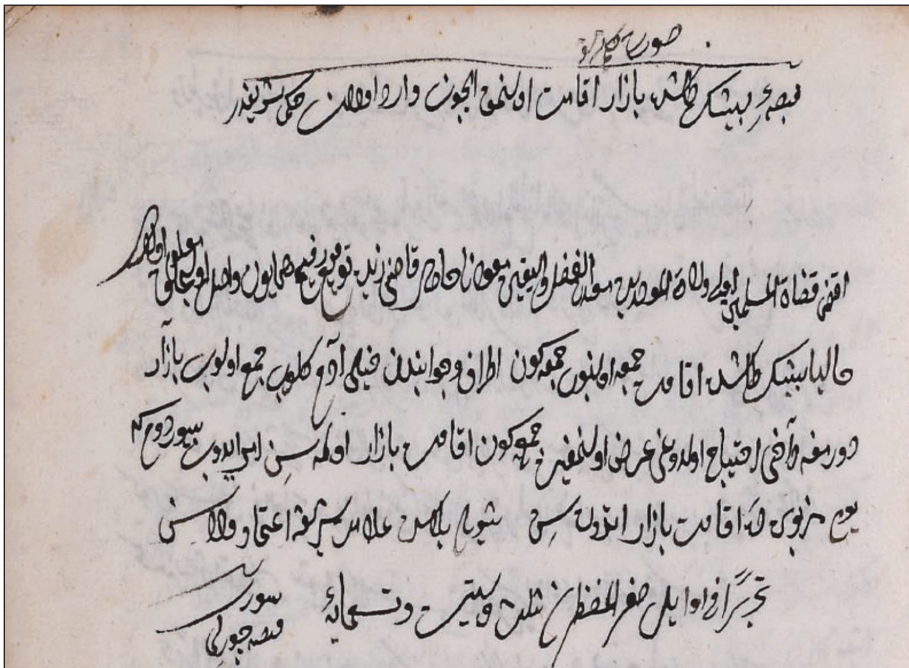 صورت
قصبهٔ بشكطاشده بازار اقامت اولنمق ايچون وارد اولان حكم شريفدر
اقضى قضاة المسلمين اولى ولاة الموحدين معدن الفضل واليقين مولانا قاضى زيد توقيع رفيع همايون واصل اوليجق معلوم اولا كه
حاليا بشكطاشده اقامت جمعه اولنوب جمعه كون اطراف وجوانبدن خيلى آدم كلوب جمع اولوب بازار
دورمغه دآخى احتياج اولدوغى عرض اولنمغين جمعه كون اقامت بازار اولمه سن امر ايدوب بيوردم كه
يوم مزبورده اقامت بازار ايتدوره سن شويله بلاسن علامت شريفه اعتماد قلاسن
تحريرًا فى اوايل صفر المظفر سنه ثلث وستين وتسعمايه
سورت